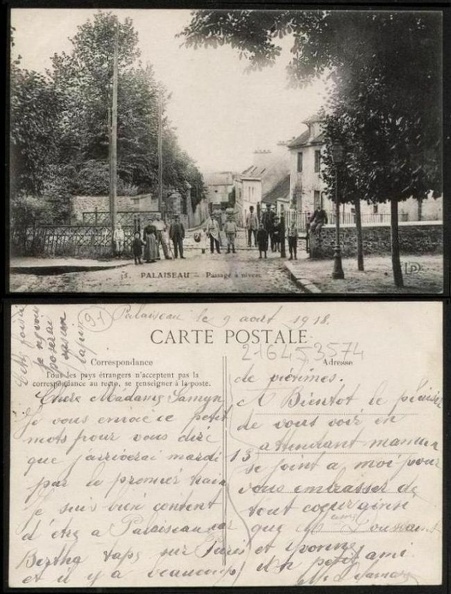 3. PALAISEAU – Passage à niveau
LD
Cette fois
je
poserai
lapin
91
Palaiseau le 9 août 1918.
CARTE POSTALE
216453574
Correspondance
Adresse
Tous les pays étrangers n'acceptent pas la
correspondance au recto, se renseigner à la poste.
Chère Madame Samyn
Je vous envoie ce petit
mots pour vous dire
que j'arriverai mardi 13
par le premier train
Je suis bien content
d'être a Palaiseau car
Bertha taps sur Paris
et il y a beaucoup
de victimes.
A Bientot le plaisir
de vous voir en
attendant maman
se joint a moi pour
vous embrasser de
tout cœur ainsi
que
et Yvonne
petit ami.